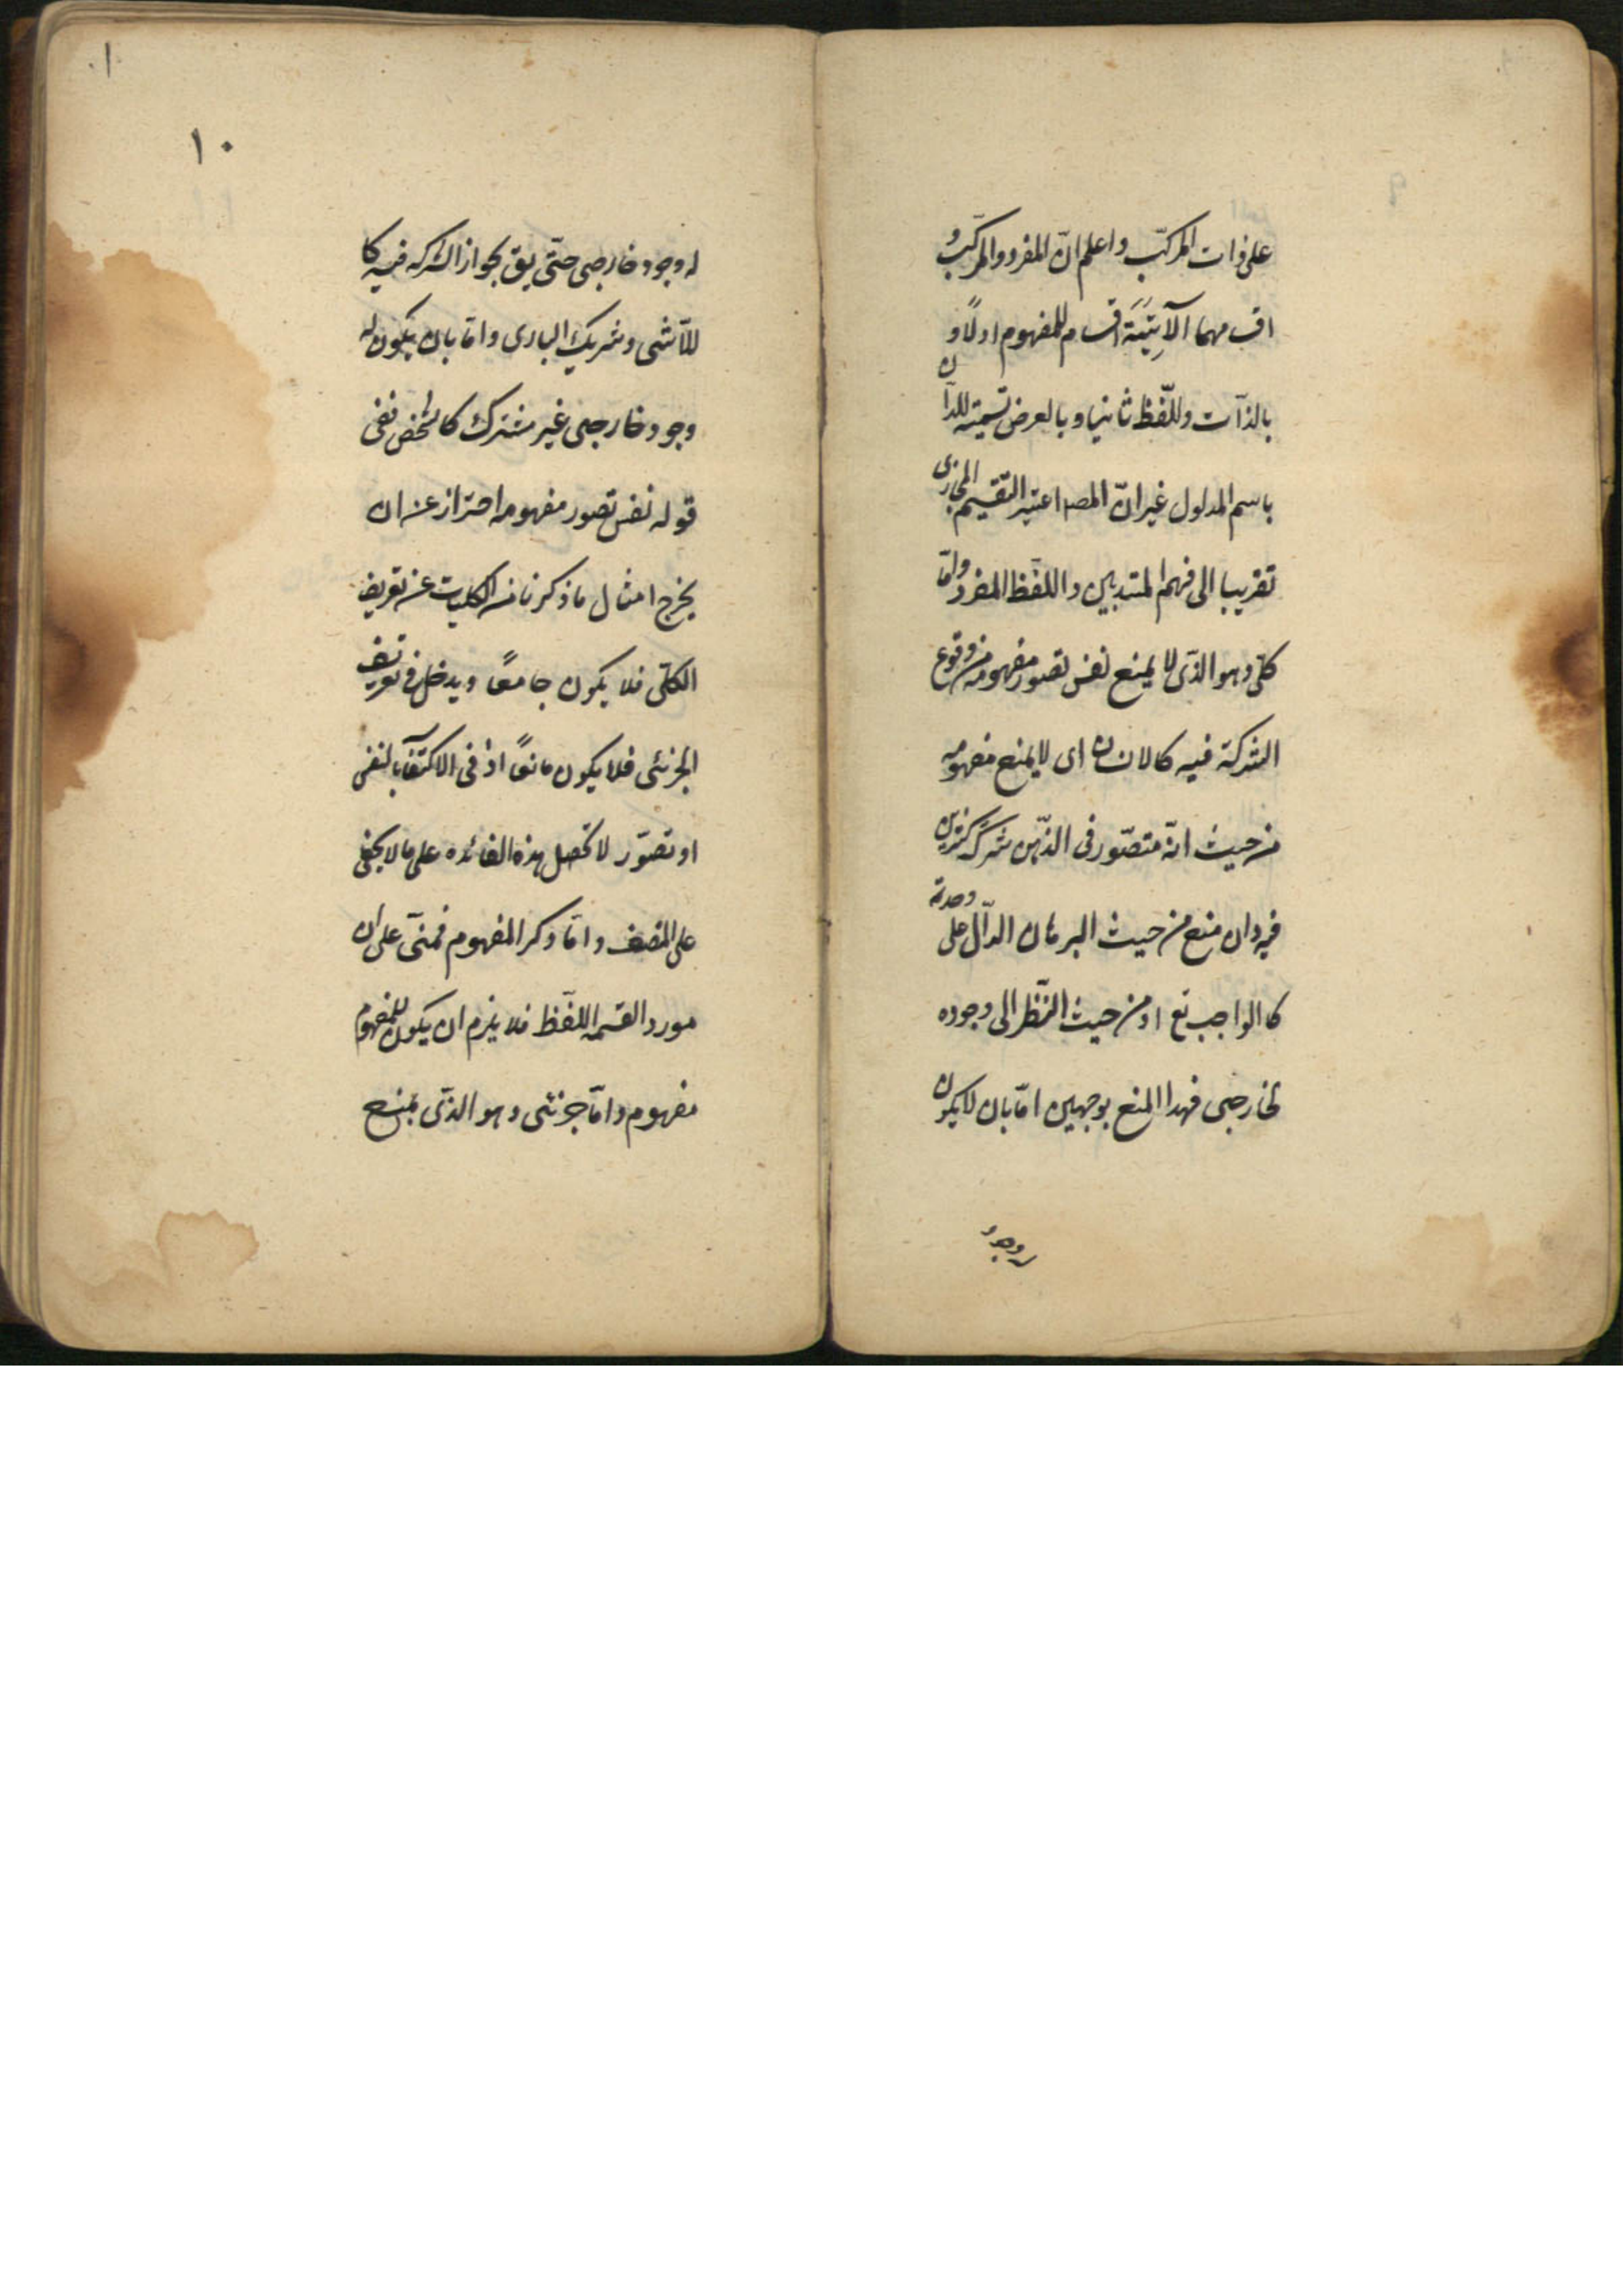 على ذات المركّب واعلم انّ المفرد والمركّب و
اقسامهما الآتِيَة اقسام للمفهوم اولًا و
بالذآت وللّفظ ثانيا وبالعرض تسمية للدآل
باسم المدلول غير انّ المصـ اعتبر التّقسيم المجازى
تقريبا الى فهم المبتديين واللّفظ المفرد وامّا
كلى وهو الذّى لا يمنع نفس تصور مفهومه من وقوع
الشركة فيه كالانسان اى لا يمنع مفهومه
من حيث انّه متصّور فى الذّهن شركة كثيرين
فيه وان منع من حيث البرهان الدآل على وحدته
كالواجب تع او من حيث النّظر الى وجوده
لخارجى فهذا المنع بوجهين امّا بان لا يكون
له وجود
١٠
له وجود خارجى حتّى يق بجواز الشركه فيه كا
للّاشى وشريك البارى وامّا بان يكون له
وجود خارجى غير مشترك كالشخص ففى
قوله نفس تصور مفهومه احتراز عن ان
يخرج امثال ما ذكرنا من الكليات عن تعريف
الكلّى فلا يكون جامعًا ويدخل فى تعريف
الجزئى فلا يكون مانعًا اذ فى الاكتفآ بالنفس
او تصوّر لا تحصل هذه الفائده على ما لا يخفى
على المنصف وامّا ذكر المفهوم فمبنى على ان
مورد القسمه اللّفظ فلا يلزم ان يكون للمفهوم
مفهوم وامّا جزئى وهو الذّى يمنع